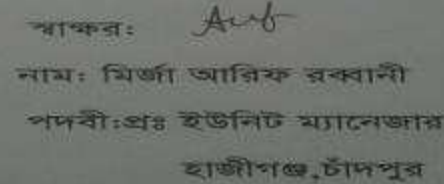 স্বাক্ষর:
নাম: মির্জা আরিফ রব্বানী
পদবী:প্রঃ ইউনিট ম্যানেজার
হাজীগঞ্জ,চাঁদপুর